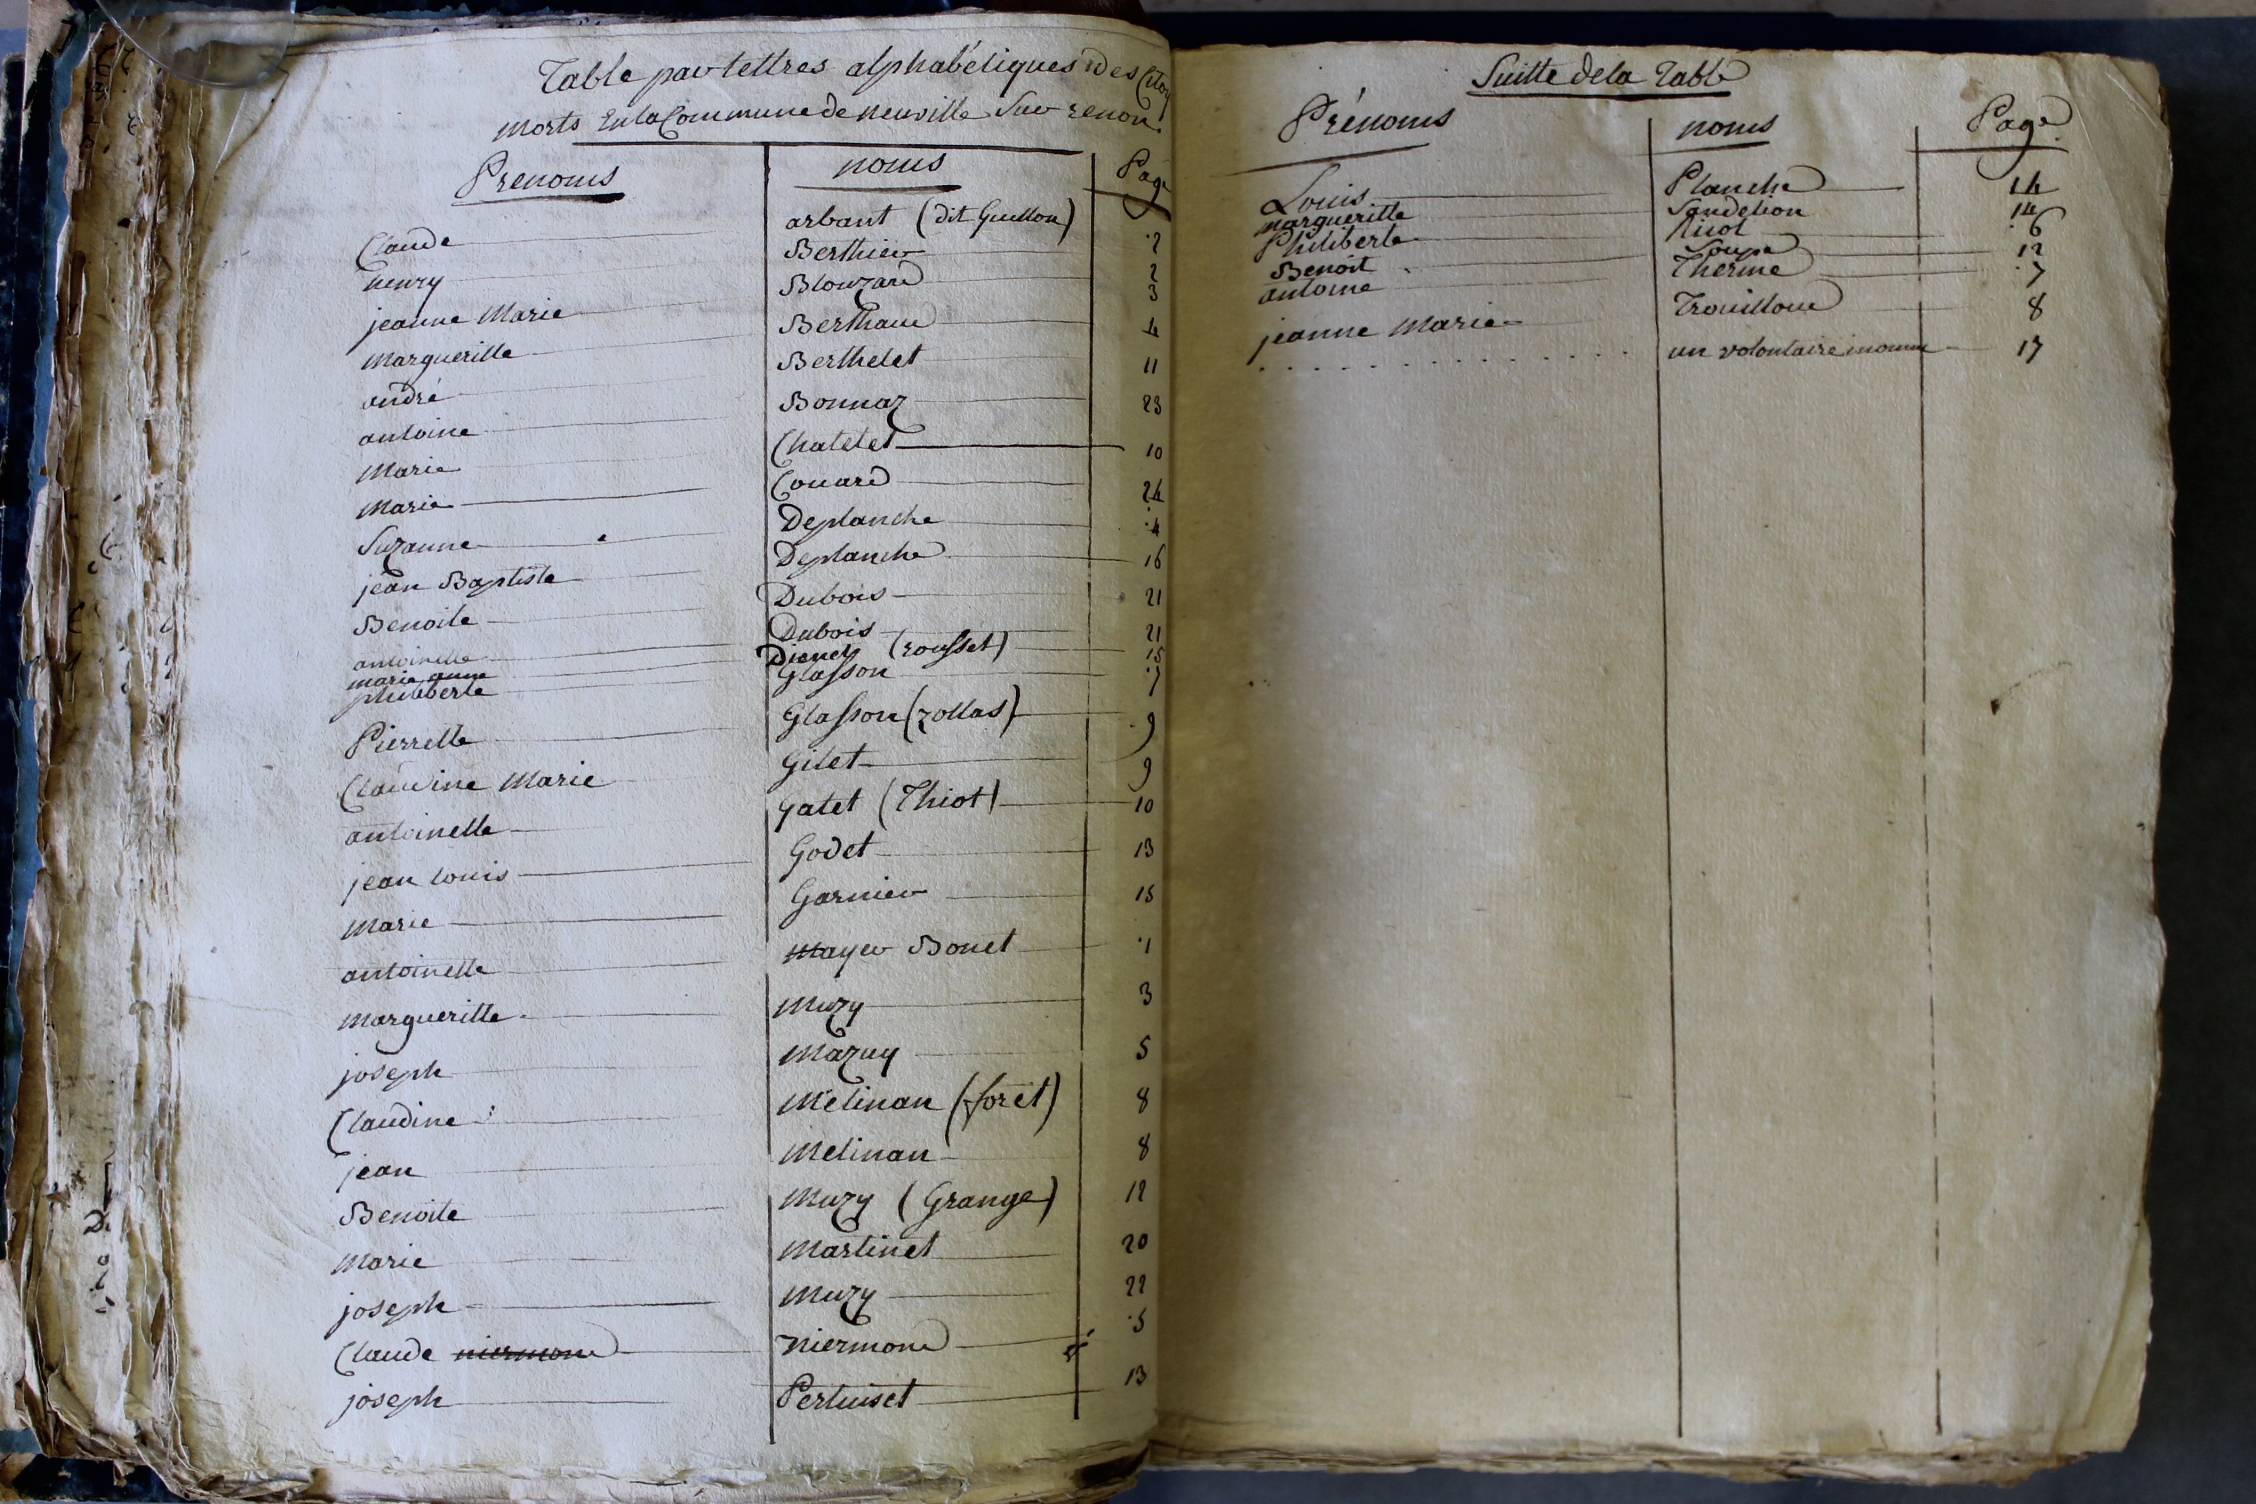 Table par lettres alphabétiques des Citoy
morts En la Commune de neuville Sur renon.
Prenoms noms Page
Claude arbant (dit Guillon) .2
henry Berthier 2
jeanne Marie Blouzard 3
margueritte Berthaud 4
andré Berthelet 11
antoine Bonnaz 23
Marie Chatelet 10
Marie Couard 24
Suzanne Deplanche .4
jean Baptiste Deplanche 16
Benoite Dubois 21
antoinette Dubois 21
marie anne (rousset) 15
philiberte Glasson .7
Pierrette Glasson (zollas) .9
Claudine Marie Gilet 9
antoinette gatet (Thiot) 10
jean Louis Godet 13
Marie Garnier 15
antoinette Mayer Bonet .1
margueritte. Muzy 3
joseph Mazuy 5
Claudine Melinan (forêt) 8
jean Melinan 8
Benoite Muzy (Grange) 12
Marie Martinet 20
joseph Muzy 22
Claude niermond niermond .5
joseph Pertuiset 13
Suitte de la Table
Prénoms noms Page
Louis Planche 14
margueritte Sandelion 14
Philiberte .6
Benoit Soupe 12
antoine Therme .7
jeanne Marie Trouilloud 8
. . . . . . . . . . . . un volontaire inconnu 17